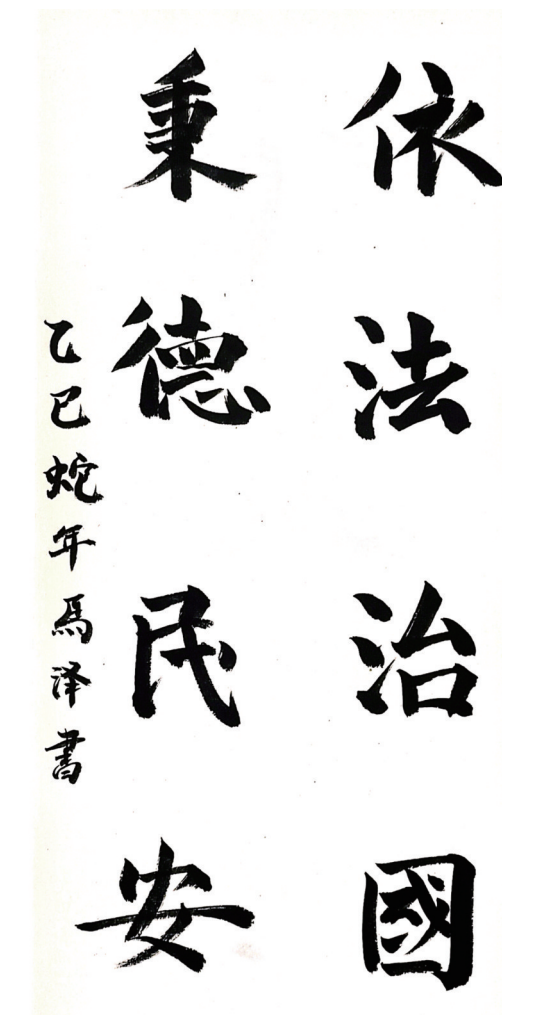 依法治國
秉德民安
乙巳蛇年馬泽書